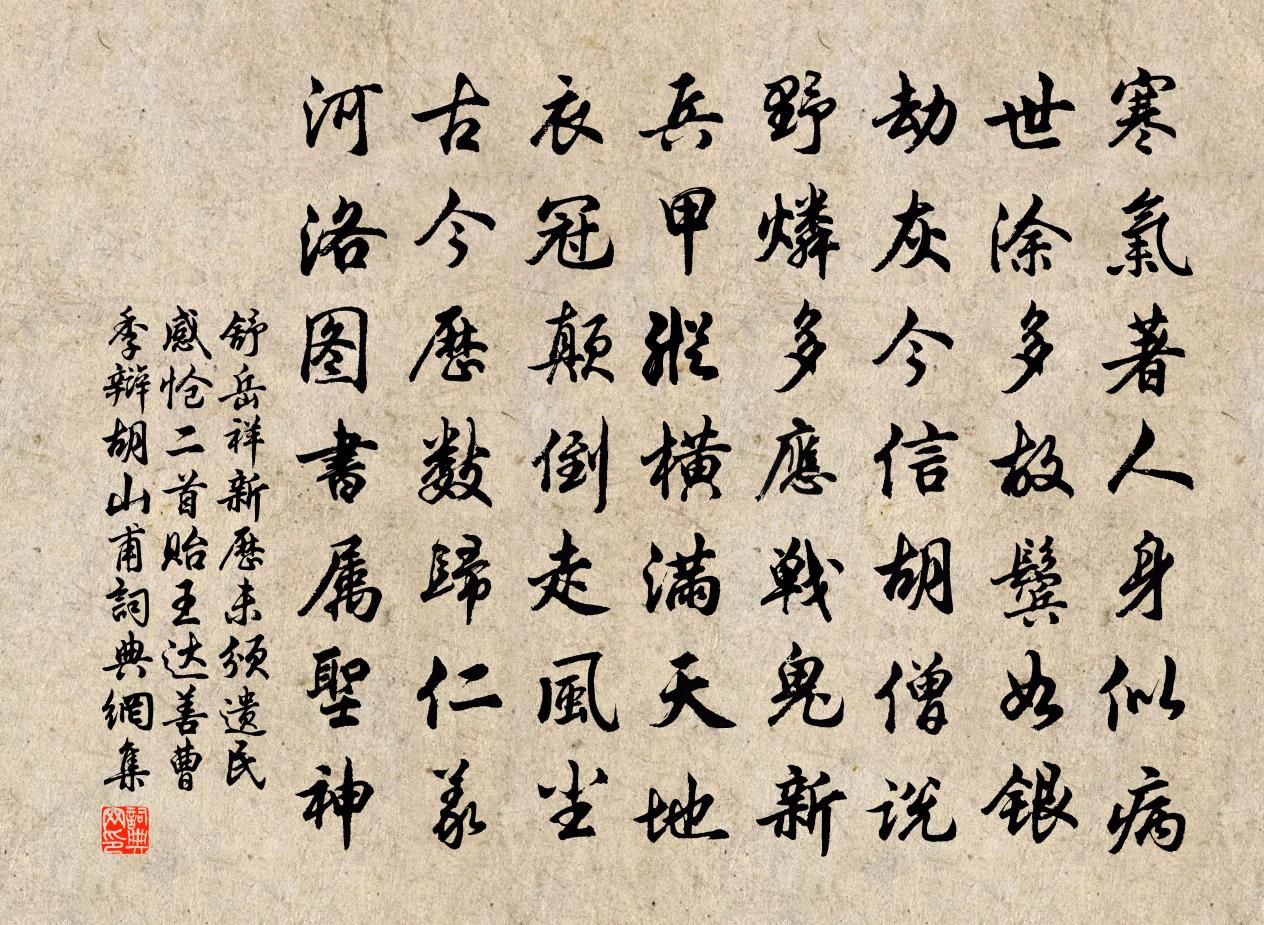 寒氣著人身似病
世涂多故鬢如銀
劫灰今信胡僧説
野燐多應戦鬼新
兵甲縱横滿天地
衣冠顛倒走風尘
古今歷數歸仁義
河洛图書属聖神
舒岳祥新歷未頒遗民
感怆二首贻王达善曹
季辯胡山甫詞典網集
詞典网印